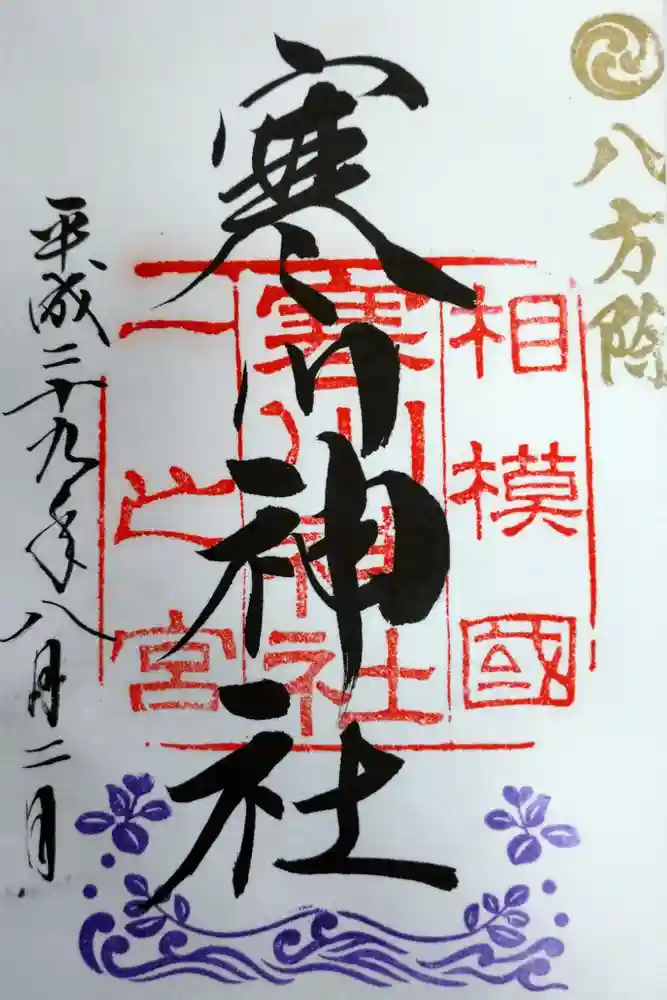 八方除
相模國
寒川神社
一之宮
寒川神社
平成二十九年八月二日